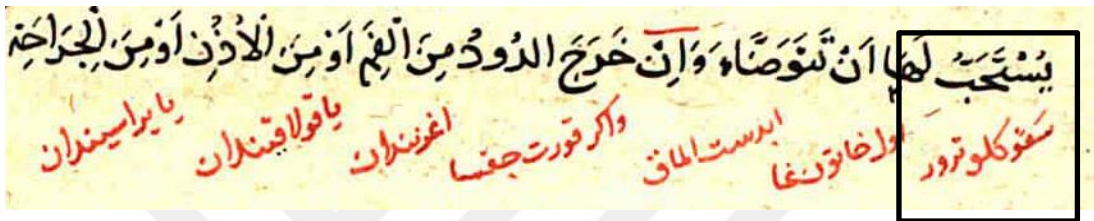 يُسْتَحَبُّ لَهَا اَنْ تَتَوَضَّاءَ وَاِنْ خَرَجَ الدُّودُ مِنَ الْفَمِ اَوْ مِنَ الْاُذُنِ اَوْ مِنَ الْجِرَاحَةِ
سقوكلوترور اول خاتون غا ابدست الماق واكر قورت جقسا اغزيندان يا قولاقيندان يا يراسيندان